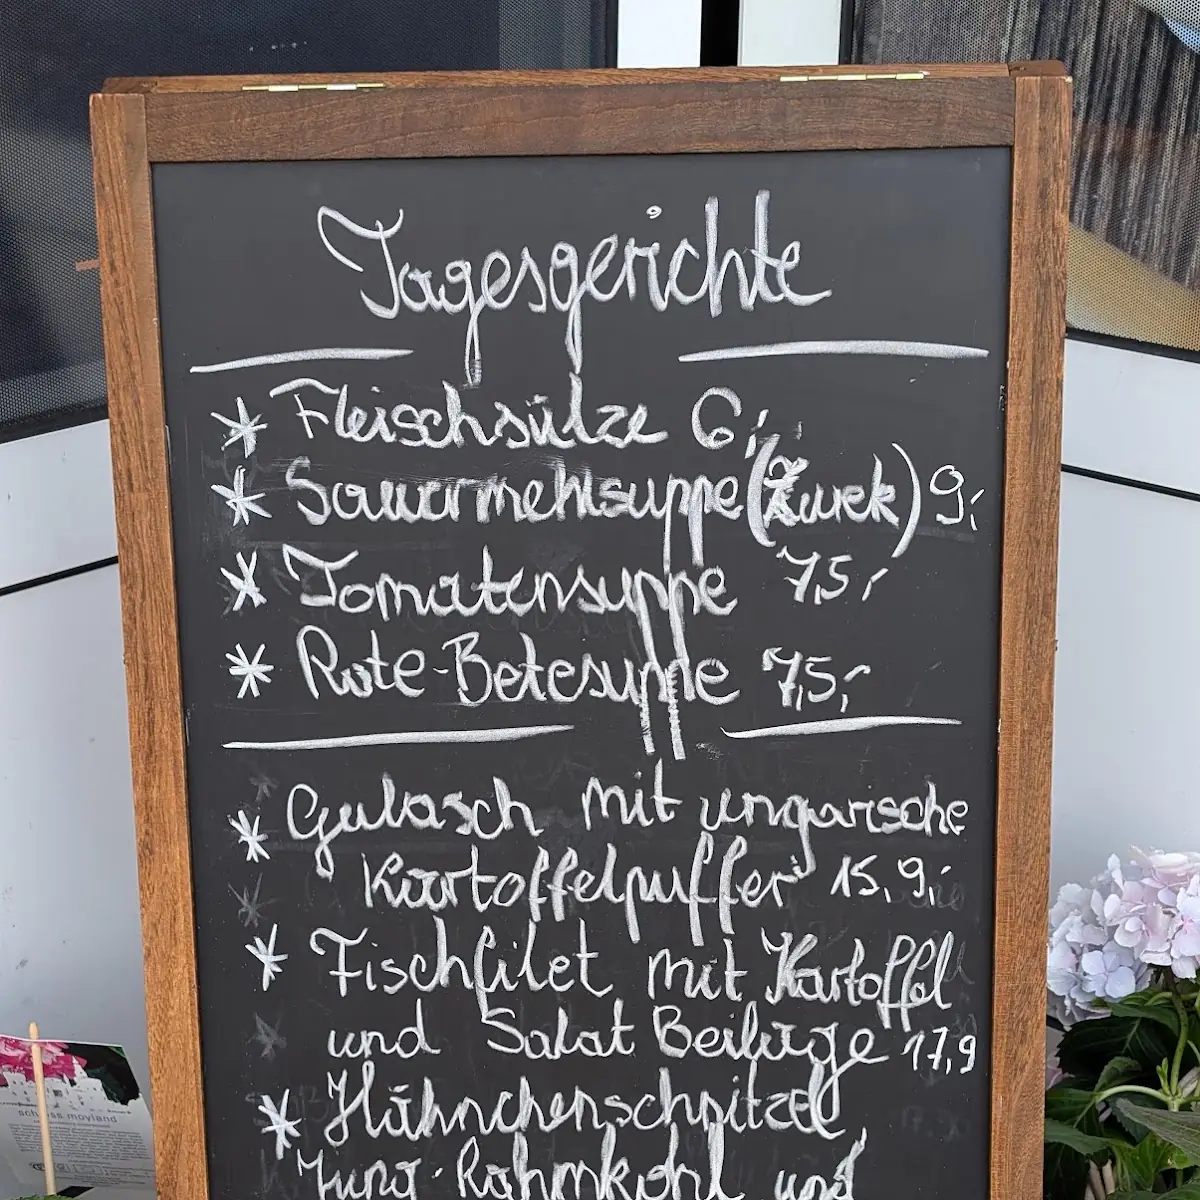 Tagesgerichte
* Fleischsülze 6,-
* Sauermehlsuppe (Żurek) 9,-
* Tomatensuppe 7,5,-
* Rote-Betesuppe 7,5,-
* Gulasch mit ungarische
Kartoffelpuffer 15,9,-
* Fischfilet mit Kartoffel
und Salat Beilage 17,9
* Hähnchenschnitzel
Jung-Rahmkohl und
schloss moyland